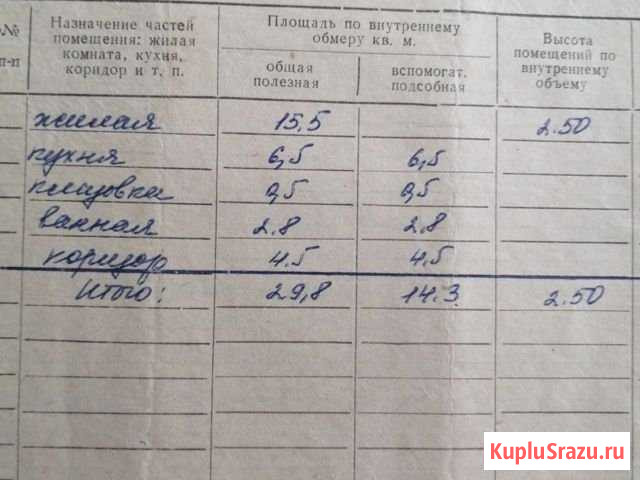 № п-п
Назначение частей
помещения: жилая
комната, кухня,
коридор и т. п.
Площадь по внутреннему
обмеру кв. м.
общая
полезная
вспомогат.
подсобная
Высота
помещений по
внутреннему
объему
жилая 15.5 2.50
кухня 6,5 6,5
кладовка 0,5 0,5
ванная 2.8 2.8
коридор 4.5 4,5
Итого: 29,8 14.3 2.50
KupluSrazu.ru